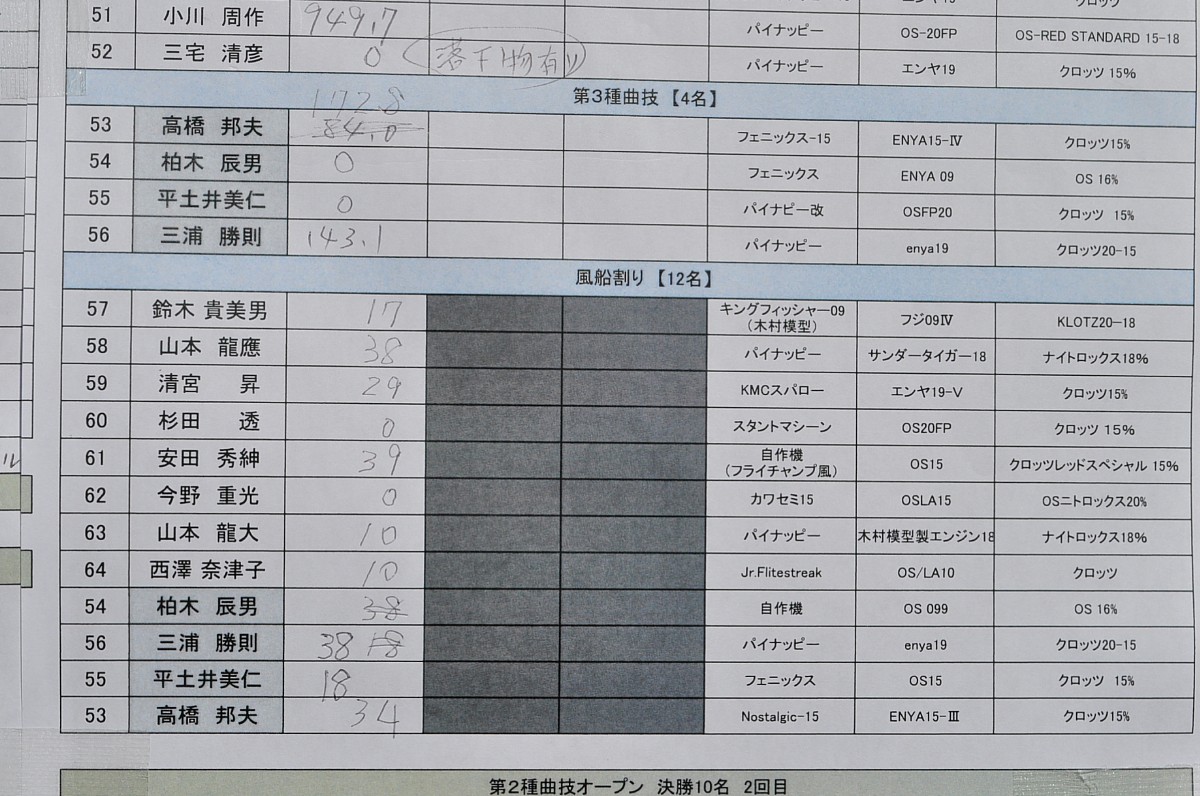 51 小川 周作 949.7 パイナッピー OS-20FP OS-RED STANDARD 15-18
52 三宅 清彦 0 落下物有り パイナッピー エンヤ19 クロッツ 15%
第3種曲技【4名】
53 高橋 邦夫 172.8 84.0 フェニックス-15 ENYA15-Ⅳ クロッツ15%
54 柏木 辰男 0 フェニックス ENYA 09 OS 16%
55 平土井美仁 0 パイナピー改 OSFP20 クロッツ 15%
56 三浦 勝則 143.1 パイナッピー enya19 クロッツ20-15
風船割り【12名】
57 鈴木 貴美男 17 キングフィッシャー09 (木村模型) フジ09Ⅳ KLOTZ20-18
58 山本 龍應 38 パイナッピー サンダータイガー18 ナイトロックス18%
59 清宮 昇 29 KMCスパロー エンヤ19-V クロッツ15%
60 杉田 透 0 スタントマシーン OS20FP クロッツ 15%
61 安田 秀紳 39 自作機 (フライチャンプ風) OS15 クロッツレッドスペシャル 15%
62 今野 重光 0 カワセミ15 OSLA15 OSニトロックス20%
63 山本 龍大 10 パイナッピー 木村模型製エンジン18 ナイトロックス18%
64 西澤 奈津子 10 Jr.Flitestreak OS/LA10 クロッツ
54 柏木 辰男 38 自作機 OS 099 OS 16%
56 三浦 勝則 38 18 パイナッピー enya19 クロッツ20-15
55 平土井美仁 18 フェニックス OS15 クロッツ 15%
53 高橋 邦夫 34 Nostalgic-15 ENYA15-Ⅲ クロッツ15%
第2種曲技オープン 決勝10名 2回目